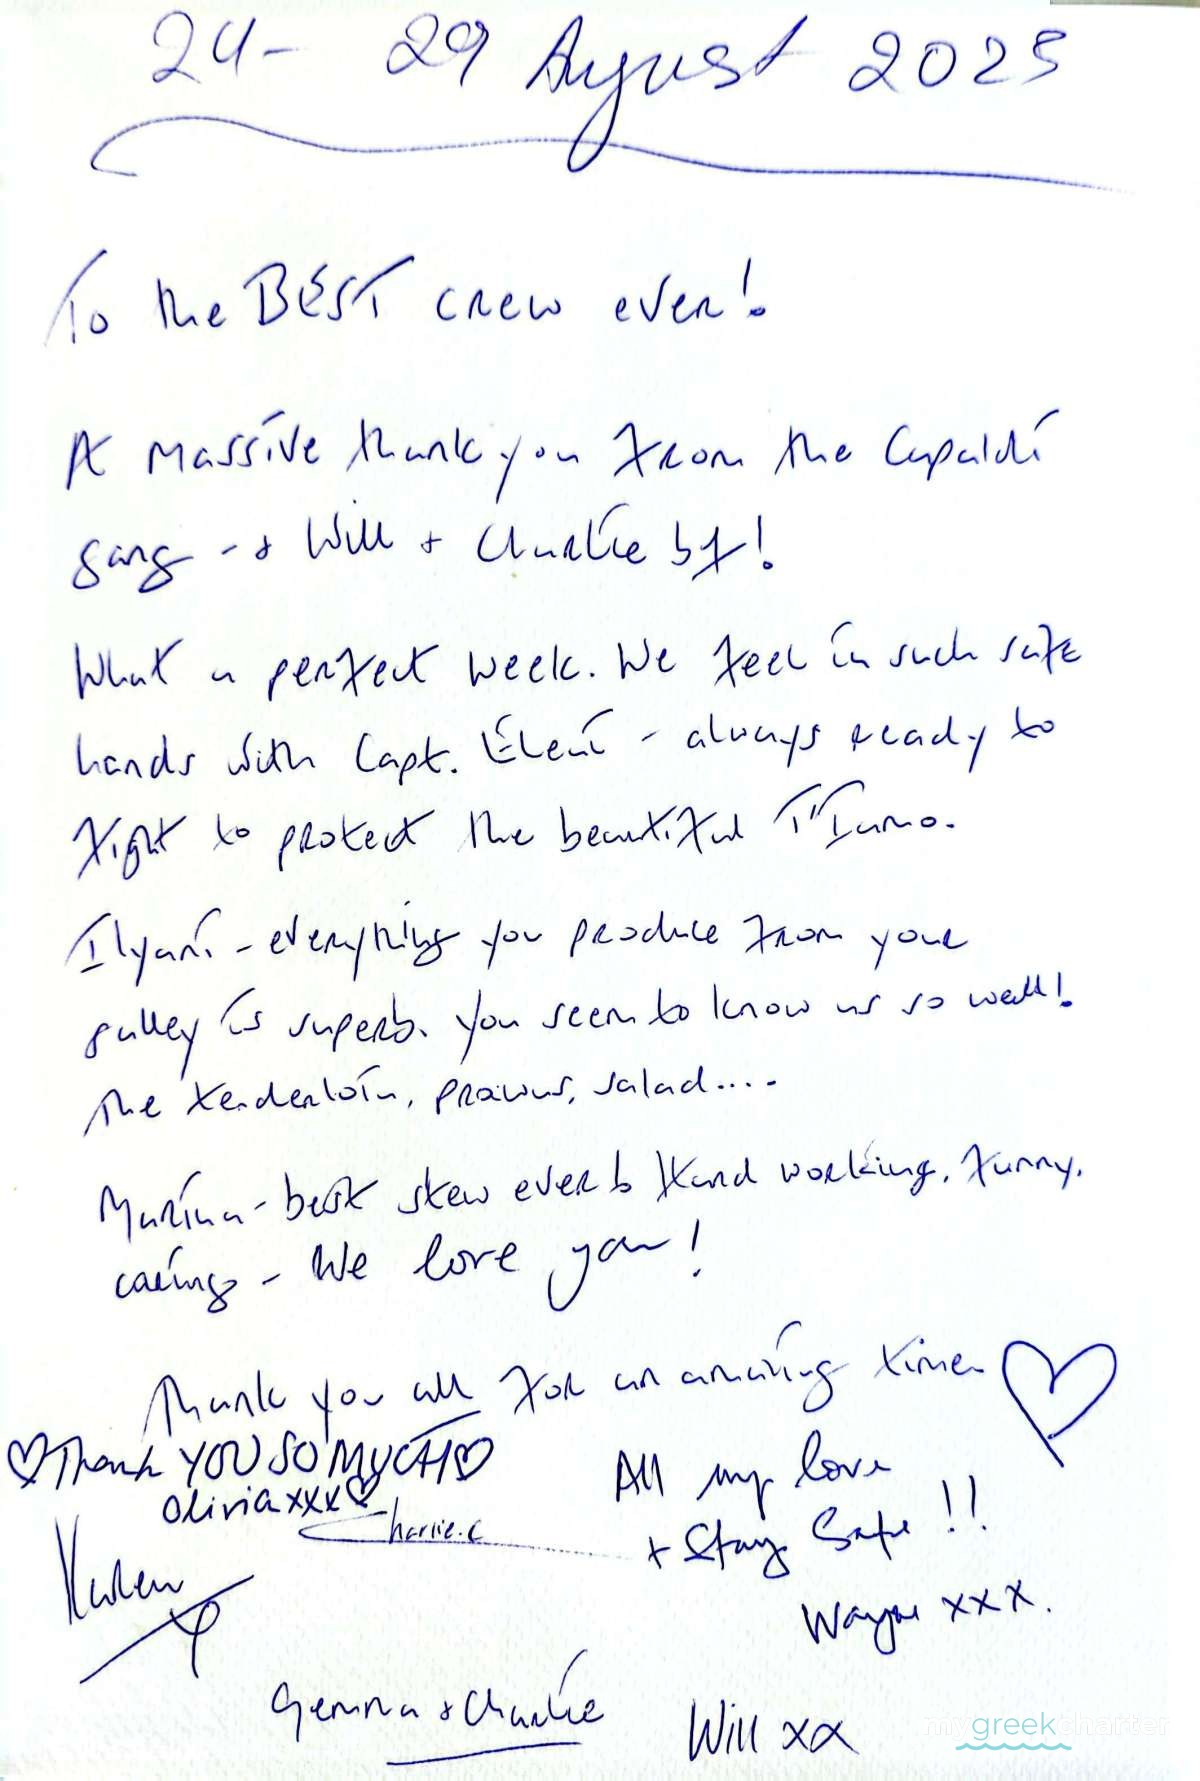 24 - 29 August 2025
To the BEST crew ever!
A massive thank you from the Capaldi
gang - + Will + Charlie bf!
What a perfect week. We feel in such safe
hands with Capt. Eleni - always ready to
fight to protect the beautiful
Ilyani - everything you produce from your
galley is superb. You seem to know us so well!
The tenderloin, prawns, salad....
Marina - best stew ever Hard working, funny,
caring - We love you!
Thank you all for an amazing time.
Thank YOU SO MUCH
Olivia xxx
Charlie.C
All my love
+ Stay Safe!!
Karen
Wayne xxx.
Gemma + Charlie
Will xx
mygreekcharter